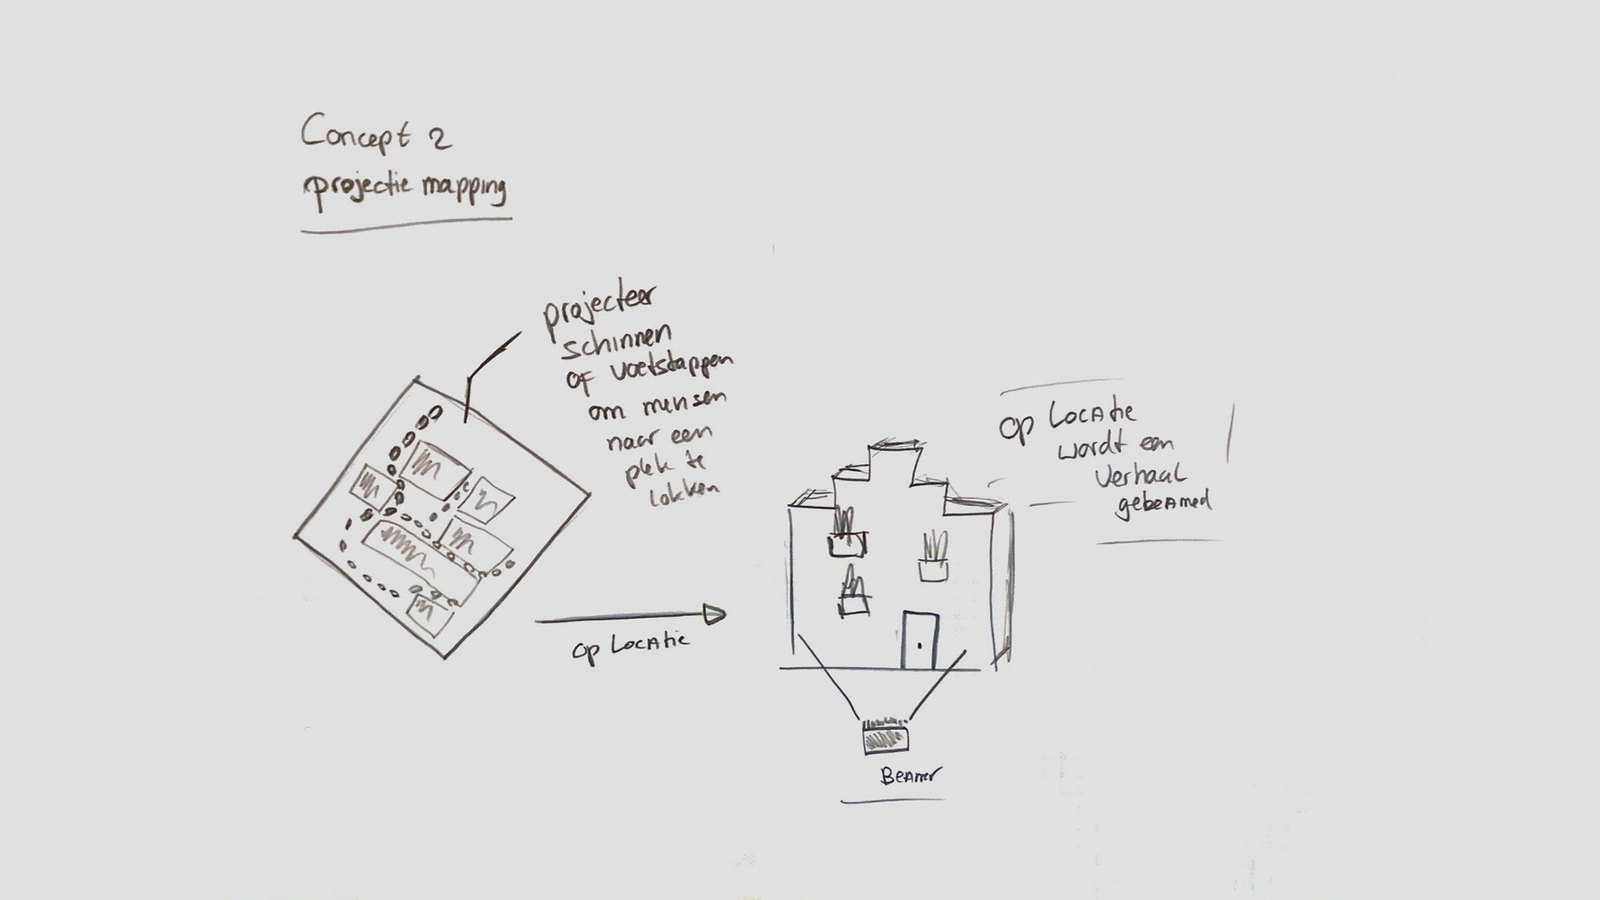 Concept 2
projectie mapping
projecteer
schinnen
of voetstappen
om mensen
naar een
plek te
lokken
op Locatie
op Locatie
wordt een
verhaal
gebeamed
Beamer